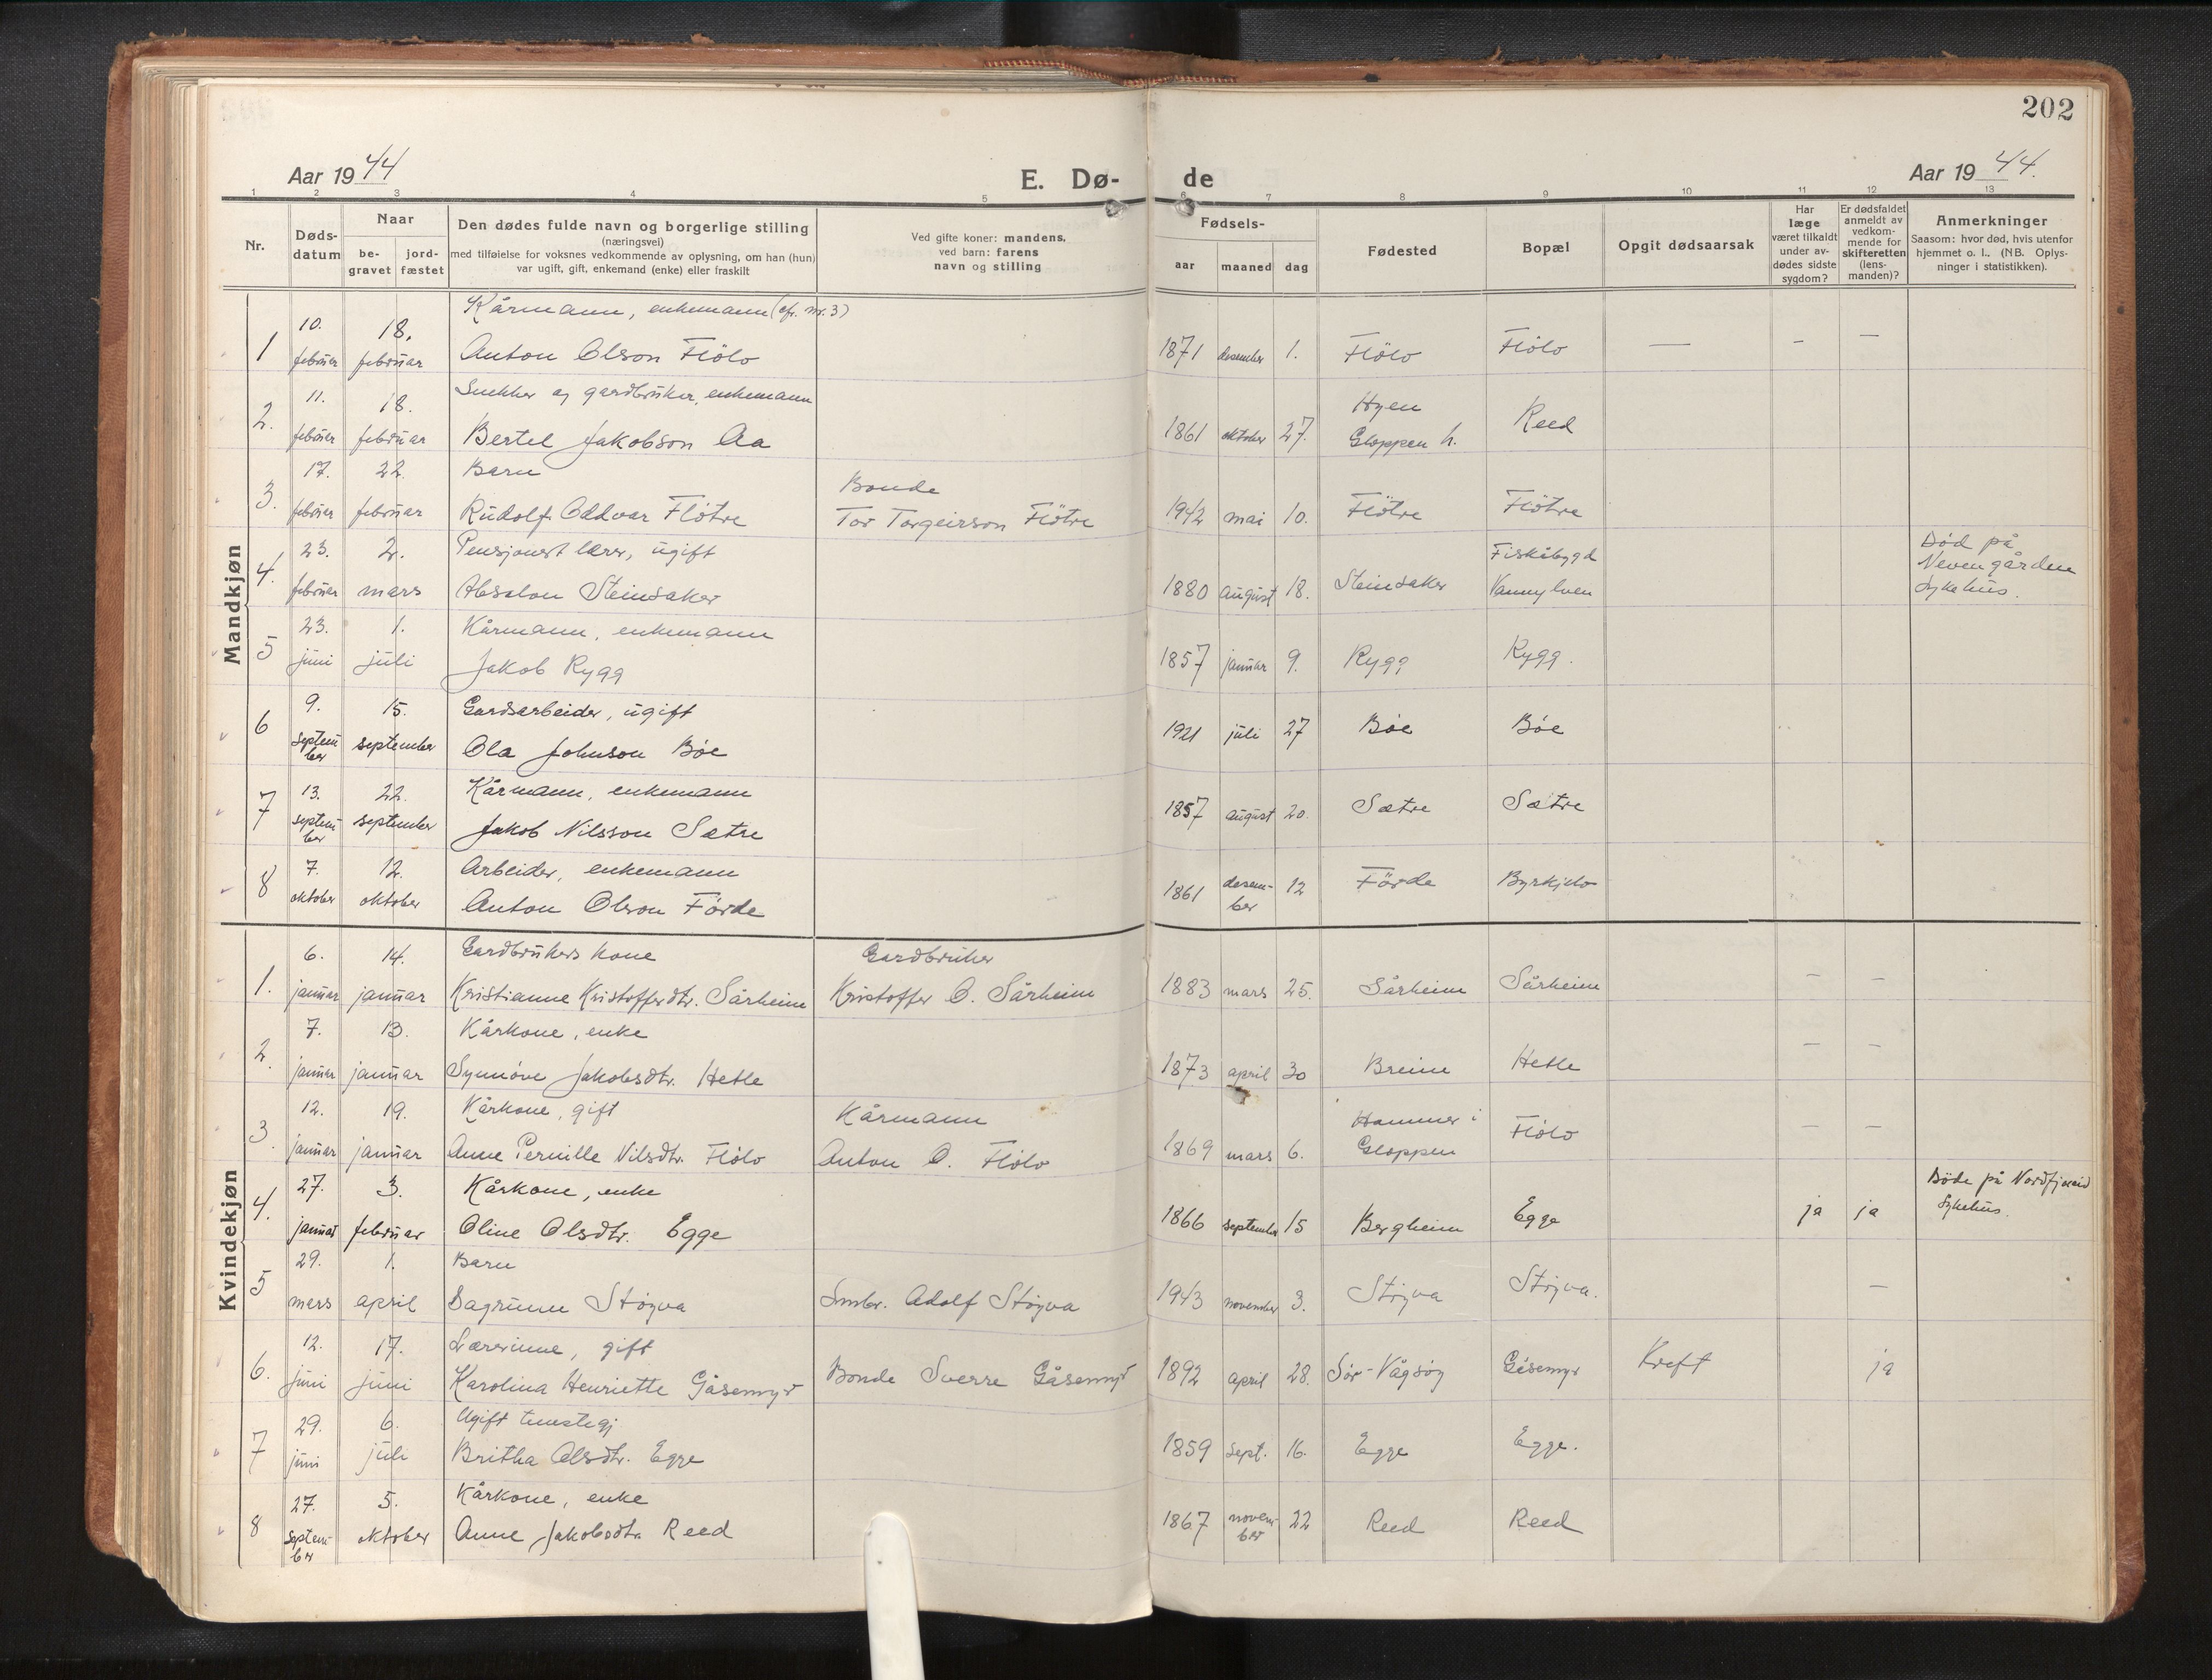 202
Aar 1944 E. Dø- de Aar 1944.
1 2 3 4 5 6 7 8 9 10 11 12 13
Nr.
Døds-
datum
Naar
be-
gravet
jord-
fæstet
Den dødes fulde navn og borgerlige stilling
(næringsvei)
med tilføielse for voksnes vedkommende av oplysning, om han (hun)
var ugift, gift, enkemand (enke) eller fraskilt
Ved gifte koner: mandens,
ved barn: farens
navn og stilling
Fødsels-
aar maaned dag
Fødested
Bopæl
Opgit dødsaarsak
Har
læge
været tilkaldt
under av-
dødes sidste
sygdom?
Er dødsfaldet
anmeldt av
vedkom-
mende for
skifteretten
(lens-
manden)?
Anmerkninger
Saasom: hvor død, hvis utenfor
hjemmet o. l., (NB. Oplys-
ninger i statistikken).
Mandkjøn
10. 18. Kårmann, enkemann (cfr. nr. 3)
1 februar februar Anton Olson Flölo 1871 desember 1. Flölo Flölo — – —
11. 18. Snekker og gardbruker, enkemann Hyen
2. februar februar Bertel Jakobson Aa 1861 oktober 27. Gloppen h. Reed
17. 22. Barn Bonde
3. februar februar Rudolf Oddvar Flötre Tor Torgeirson Flötre 1942 mai 10. Flötre Flötre
23. 2. Pensjonert lærer, ugift Fiskåbygd Död på
4. februar mars Absalon Steinsaker 1880 august 18. Steinsaker Vannylven Nevengården
Sykehus.
23. 1. Kårmann, enkemann
5 juni juli Jakob Rygg 1857 januar 9. Rygg Rygg.
9. 15. Gardsarbeider, ugift
6 septem-
ber september Ola Johnson Böe 1921 juli 27 Böe Böe
13. 22. Kårmann, enkemann
7 septem-
ber september Jakob Nilsson Sætre 1857 august 20. Sætre Sætre
7. 12. Arbeider, enkemann
8 oktober oktober Anton Olson Förde 1861 desem-
ber 12 Förde Byrkjelo
Kvindekjøn
6. 14. Gardbrukers kone Gardbruker
1. januar januar Kristianne Kristofferdtr. Sårheim Kristoffer O. Sårheim 1883 mars 25. Sårheim Sårheim – –
7. 13. Kårkone, enke
2. januar januar Synnöve Jakobsdtr. Hetle 1873 april 30 Breim Hetle – –
12. 19. Kårkone, gift Kårmann Hammer i
3. januar januar Anne Pernille Nilsdtr. Flölo Anton O. Flölo 1869 mars 6. Gloppen Flölo – –
27. 3. Kårkone, enke Döde på Nordfjordeid
4. januar februar Oline Olsdtr. Egge 1866 september 15 Bergheim Egge ja ja Sykehus.
29. 1. Barn
5 mars april Dagrunn Stöyva Smbr. Adolf Stöyva 1943 november 3. Stöyva Stöyva. –
12. 17. Lærerinne, gift
6. juni juni Karolina Henriette Gåsemyr Bonde Sverre Gåsemyr 1892 april 28. Sör-Vågsöy Gåsemyr Kreft ja
29. 6. Ugift tenestegj
7 juni juli Britha Olsdtr. Egge 1859 sept. 16. Egge Egge.
27. 5. Kårkone, enke
8 septem-
ber oktober Anne Jakobsdtr. Reed 1867 novem-
ber 22 Reed Reed